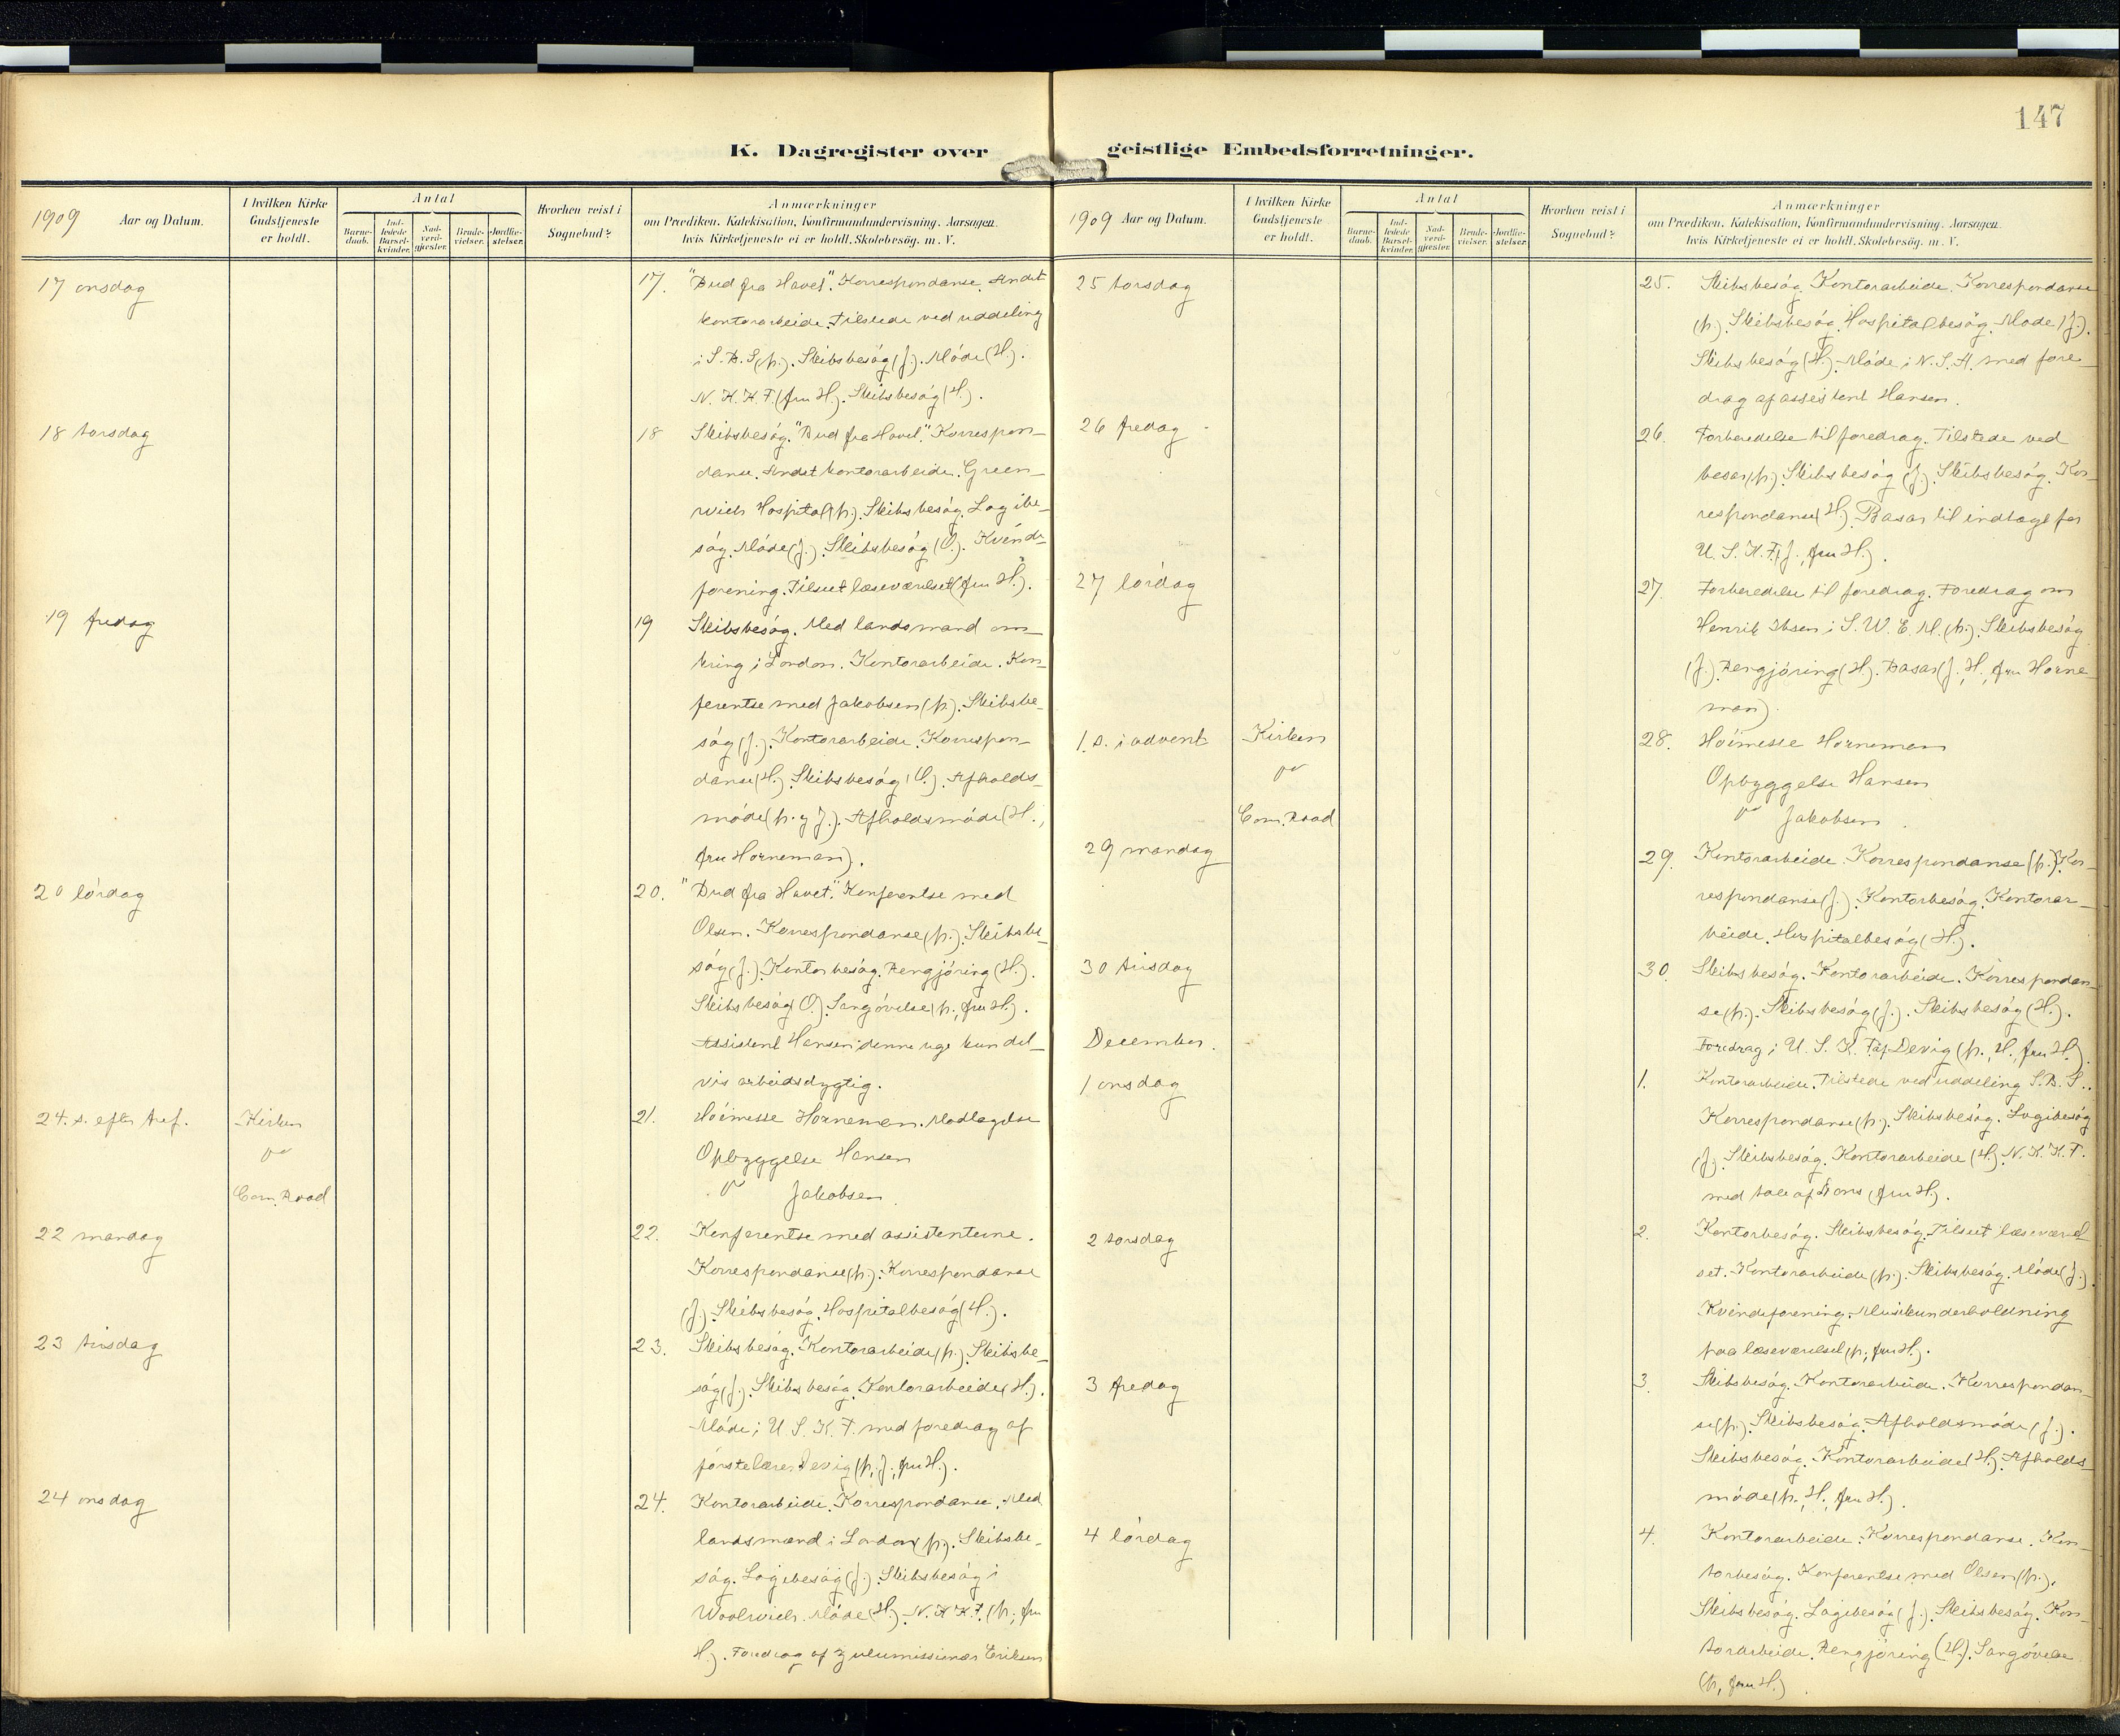 147
K. Dagregister over geistlige Embedsforretninger.
1909 Aar og Datum.
I hvilken Kirke Gudstjeneste er holdt.
Antal
Barnedaab.
Indledede Barselkvinder.
Nadverdgjester.
Brudevielser.
Jordfæstelser.
Hvorhen reist i Sognebud?
Anmærkninger
om Prædiken, Katekisation, Konfirmandundervisning. Aarsagen,
hvis Kirketjeneste ei er holdt. Skolebesög. m. V.
17 onsdag
17. "Bud fra Havet". Korrespondanse. Andet
kontorarbeide. Tilstede ved uddeling
i S. B. S (p.). Skibsbesög (J). Möde (H).
N. K. K. F. (fru H.). Skibsbesög (H).
18 torsdag
18 Skibsbesög. "Bud fra Havet." Korrespon-
danse. Andet kontorarbeide. Green-
wich Hospital (p.). Skibsbesög. Logibe-
sög. Möde (J.). Skibsbesög (O.). Kvinde-
forening. Tilseet læseværelset (fru H.).
19 fredag
19 Skibsbesög. Med landsmand om-
kring i London. Kontorarbeide. Kon-
ferentse med Jakobsen (p.). Skibsbe-
sög (J.). Kontorarbeide. Korrespon-
danse (H.). Skibsbesög (O.). Afholds-
möde (p. og J.). Afholdsmöde (H.,
fru Horneman).
20 lördag
20. "Bud fra Havet." Konferentse med
Olsen. Korrespondanse (p.). Skibsbe-
sög (J.). Kontorbesög. Rengjöring (H.).
Skibsbesög (O.). Sangövelse (p., fru H.).
Assistent Hansen denne uge kun del-
vis arbeidsdygtig.
24. s. efter tref.
Kirken
Com. Road
21. Höimesse Horneman. Modtagelse
Opbyggelse Hansen
" Jakobsen
22 mandag
22. Konferentse med assistenterne.
Korrespondanse (p.). Korrespondanse
(J.). Skibsbesög. Hospitalbesög (H.).
23 tirsdag
23. Skibsbesög. Kontorarbeide (p.). Skibsbe-
sög (J.). Skibsbesög. Kontorarbeide (H.).
Möde i U. S. K. F. med foredrag af
förstelærer Devig (p., J., fru H.).
24 onsdag
24. Kontorarbeide. Korrespondanse. Med
landsmænd i London (p.). Skibsbe-
sög. Logibesög (J.). Skibsbesög i
Woolwich. Möde (H.). N. K. K. F. (p., fru
H.). Foredrag af zulumissionær Eriksen
1909 Aar og Datum.
I hvilken Kirke Gudstjeneste er holdt.
Antal
Barnedaab.
Indledede Barselkvinder.
Nadverdgjester.
Brudevielser.
Jordfæstelser.
Hvorhen reist i Sognebud?
Anmærkninger
om Prædiken, Katekisation, Konfirmandundervisning. Aarsagen,
hvis Kirketjeneste ei er holdt. Skolebesög. m. V.
25 torsdag
25. Skibsbesög. Kontorarbeide. Korrespondanse
(p.). Skibsbesög. Hospitalbesög. Möde (J.).
Skibsbesög (H.). Möde i N. S. A. med fore-
drag af assistent Hansen.
26 fredag
26. Forberedelse til foredrag. Tilstede ved
basar (p.). Skibsbesög (J.). Skibsbesög. Kor-
respondanse (H.). Basar til indtægt for
U. S. K. F. (J., fru H.).
27 lördag
27. Forberedelse til foredrag. Foredrag om
Henrik Ibsen i S. W. E. M. (p.). Skibsbesög
(J.). Rengjöring (H.). Basar (J., H., fru Horne-
man).
1. s. i advent
Kirken
Com. Road
28. Höimesse Horneman
Opbyggelse Hansen
" Jakobsen
29 mandag
29. Kontorarbeide. Korrespondanse (p.). Kor-
respondanse (J.). Kontorbesög. Kontorar-
beide. Hospitalbesög (H.).
30 tirsdag
30. Skibsbesög. Kontorarbeide. Korrespondan-
se (p.). Skibsbesög (J.). Skibsbesög (H.).
Foredrag i U. S. K. F. af Devig (p., H., fru H.).
December.
1 onsdag
1. Kontorarbeide. Tilstede ved uddeling S. B. S..
Korrespondanse (p.). Skibsbesög. Logibesög
(J). Skibsbesög. Kontorarbeide (H.). N. K. K. F.
med tale af (fru H.).
2 torsdag
2. Kontorbesög. Skibsbesög. Tilseet læseværel-
set. Kontorarbeide (p.). Skibsbesög. Möde (J.).
Kvindeforening. Musikunderholdning
paa læseværelset (p., fru H.).
3 fredag
3. Skibsbesög. Kontorarbeide. Korrespondan-
se (p.). Skibsbesög. Afholdsmöde (J.).
Skibsbesög. Kontorarbeide (H.). Afholds-
möde (p., H., fru H.).
4 lördag
4. Kontorarbeide. Korrespondanse. Kon-
torbesög. Konferentse med Olsen (p.).
Skibsbesög. Logibesög (J.). Skibsbesög. Kon-
torarbeide. Rengjöring (H.). Sangövelse
(p., fru H.)